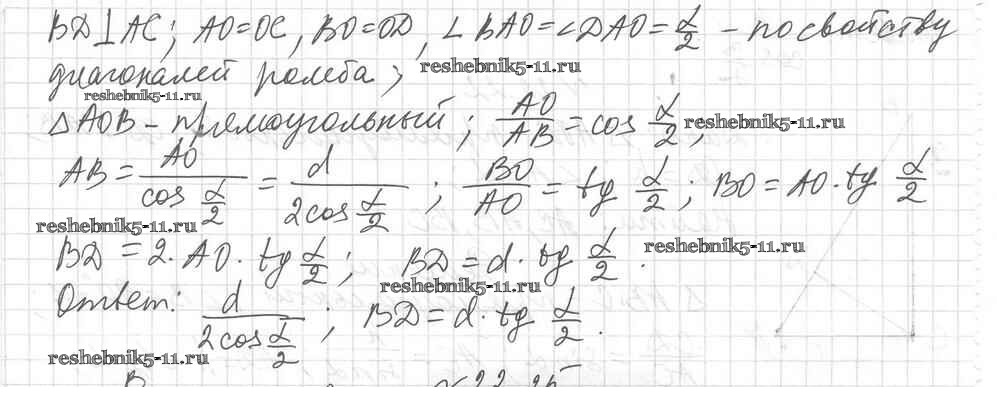 BD⊥AC; AO=OC, BO=OD, ∠BAO=∠DAO=α/2 - по свойству
диагоналей ромба;
reshebnik5-11.ru
reshebnik5-11.ru
ΔAOB - прямоугольный; AO/AB = cos α/2;
reshebnik5-11.ru
AB = AO/(cos α/2) = d/(2cos α/2); BO/AO = tg α/2; BO = AO·tg α/2
reshebnik5-11.ru
BD = 2·AO·tg α/2; BD = d·tg α/2.
reshebnik5-11.ru
reshebnik5-11.ru
Ответ: d/(2cos α/2); BD = d·tg α/2.
reshebnik5-11.ru